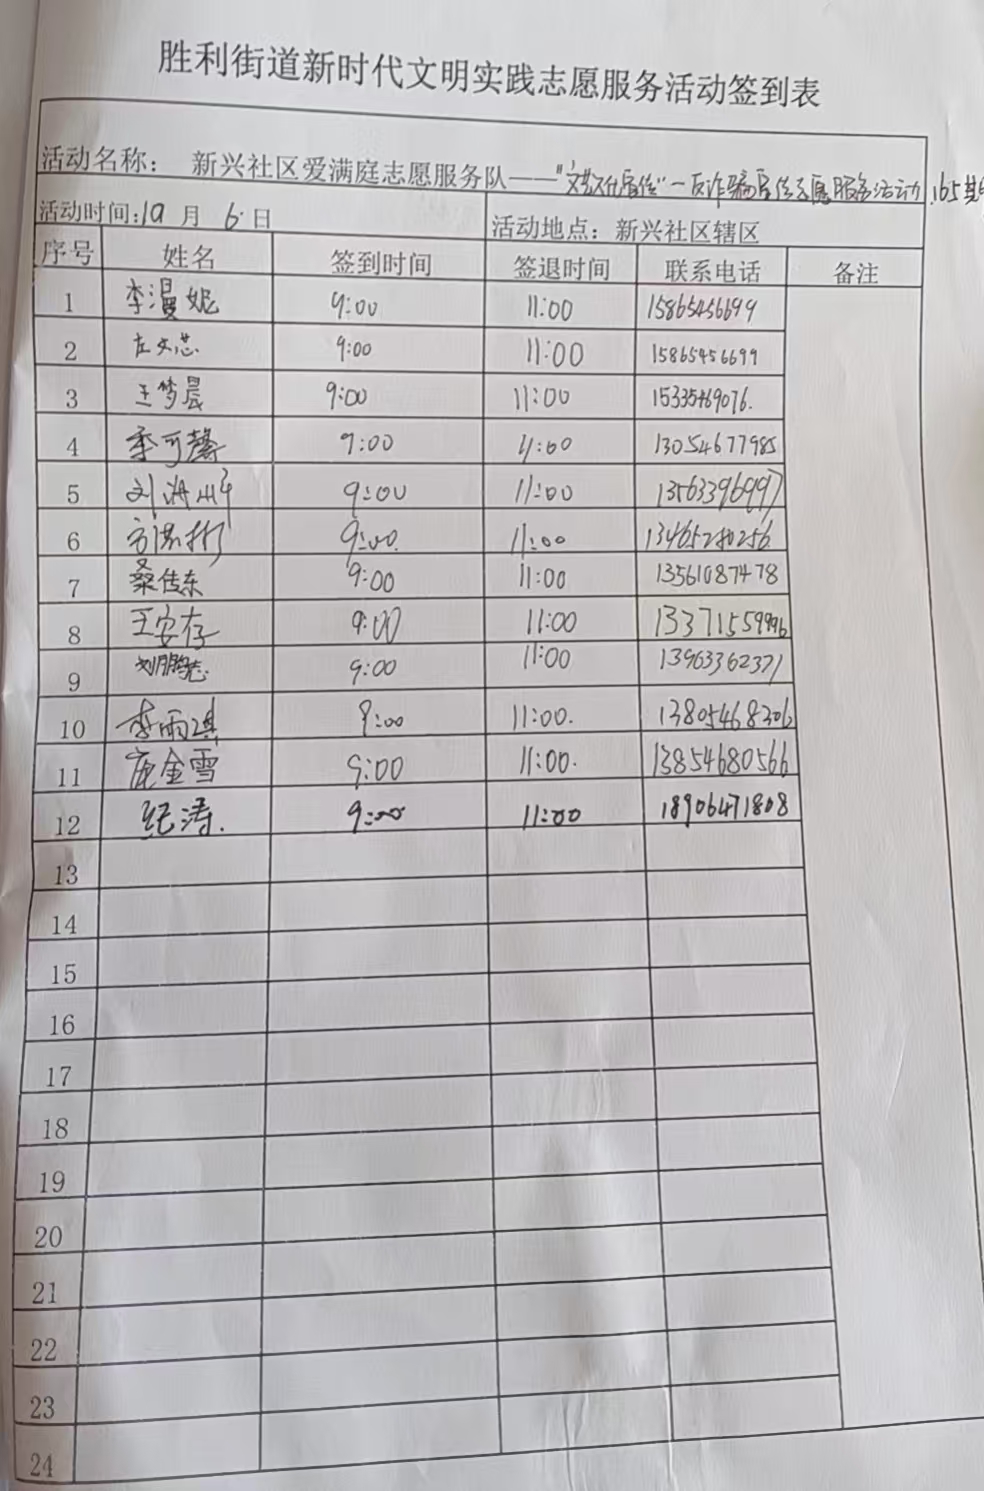 胜利街道新时代文明实践志愿服务活动签到表
活动名称： 新兴社区爱满庭志愿服务队——"文艺文化宣传"—反诈骗宣传志愿服务活动
活动时间:10 月 6 日 活动地点：新兴社区辖区
序号 姓名 签到时间 签退时间 联系电话 备注
1 李漫妮 9:00 11:00 15865456699
2 左文芯 9:00 11:00 15865456699
3 王梦晨 9:00 11:00 15335469076.
4 季可馨 9:00 11:00 13054677985
5 刘 9:00 11:00 13563396997
6 9:00 11:00 13465280256
7 桑传东 9:00 11:00 13561087478
8 王安存 9:00 11:00 13371559996
9 刘鹏志 9:00 11:00 13963362371
10 李雨琪 9:00 11:00. 13805468306
11 庞金雪 9:00 11:00. 13854680566
12 纪涛. 9:00 11:00 18906471808
13
14
15
16
17
18
19
20
21
22
23
24